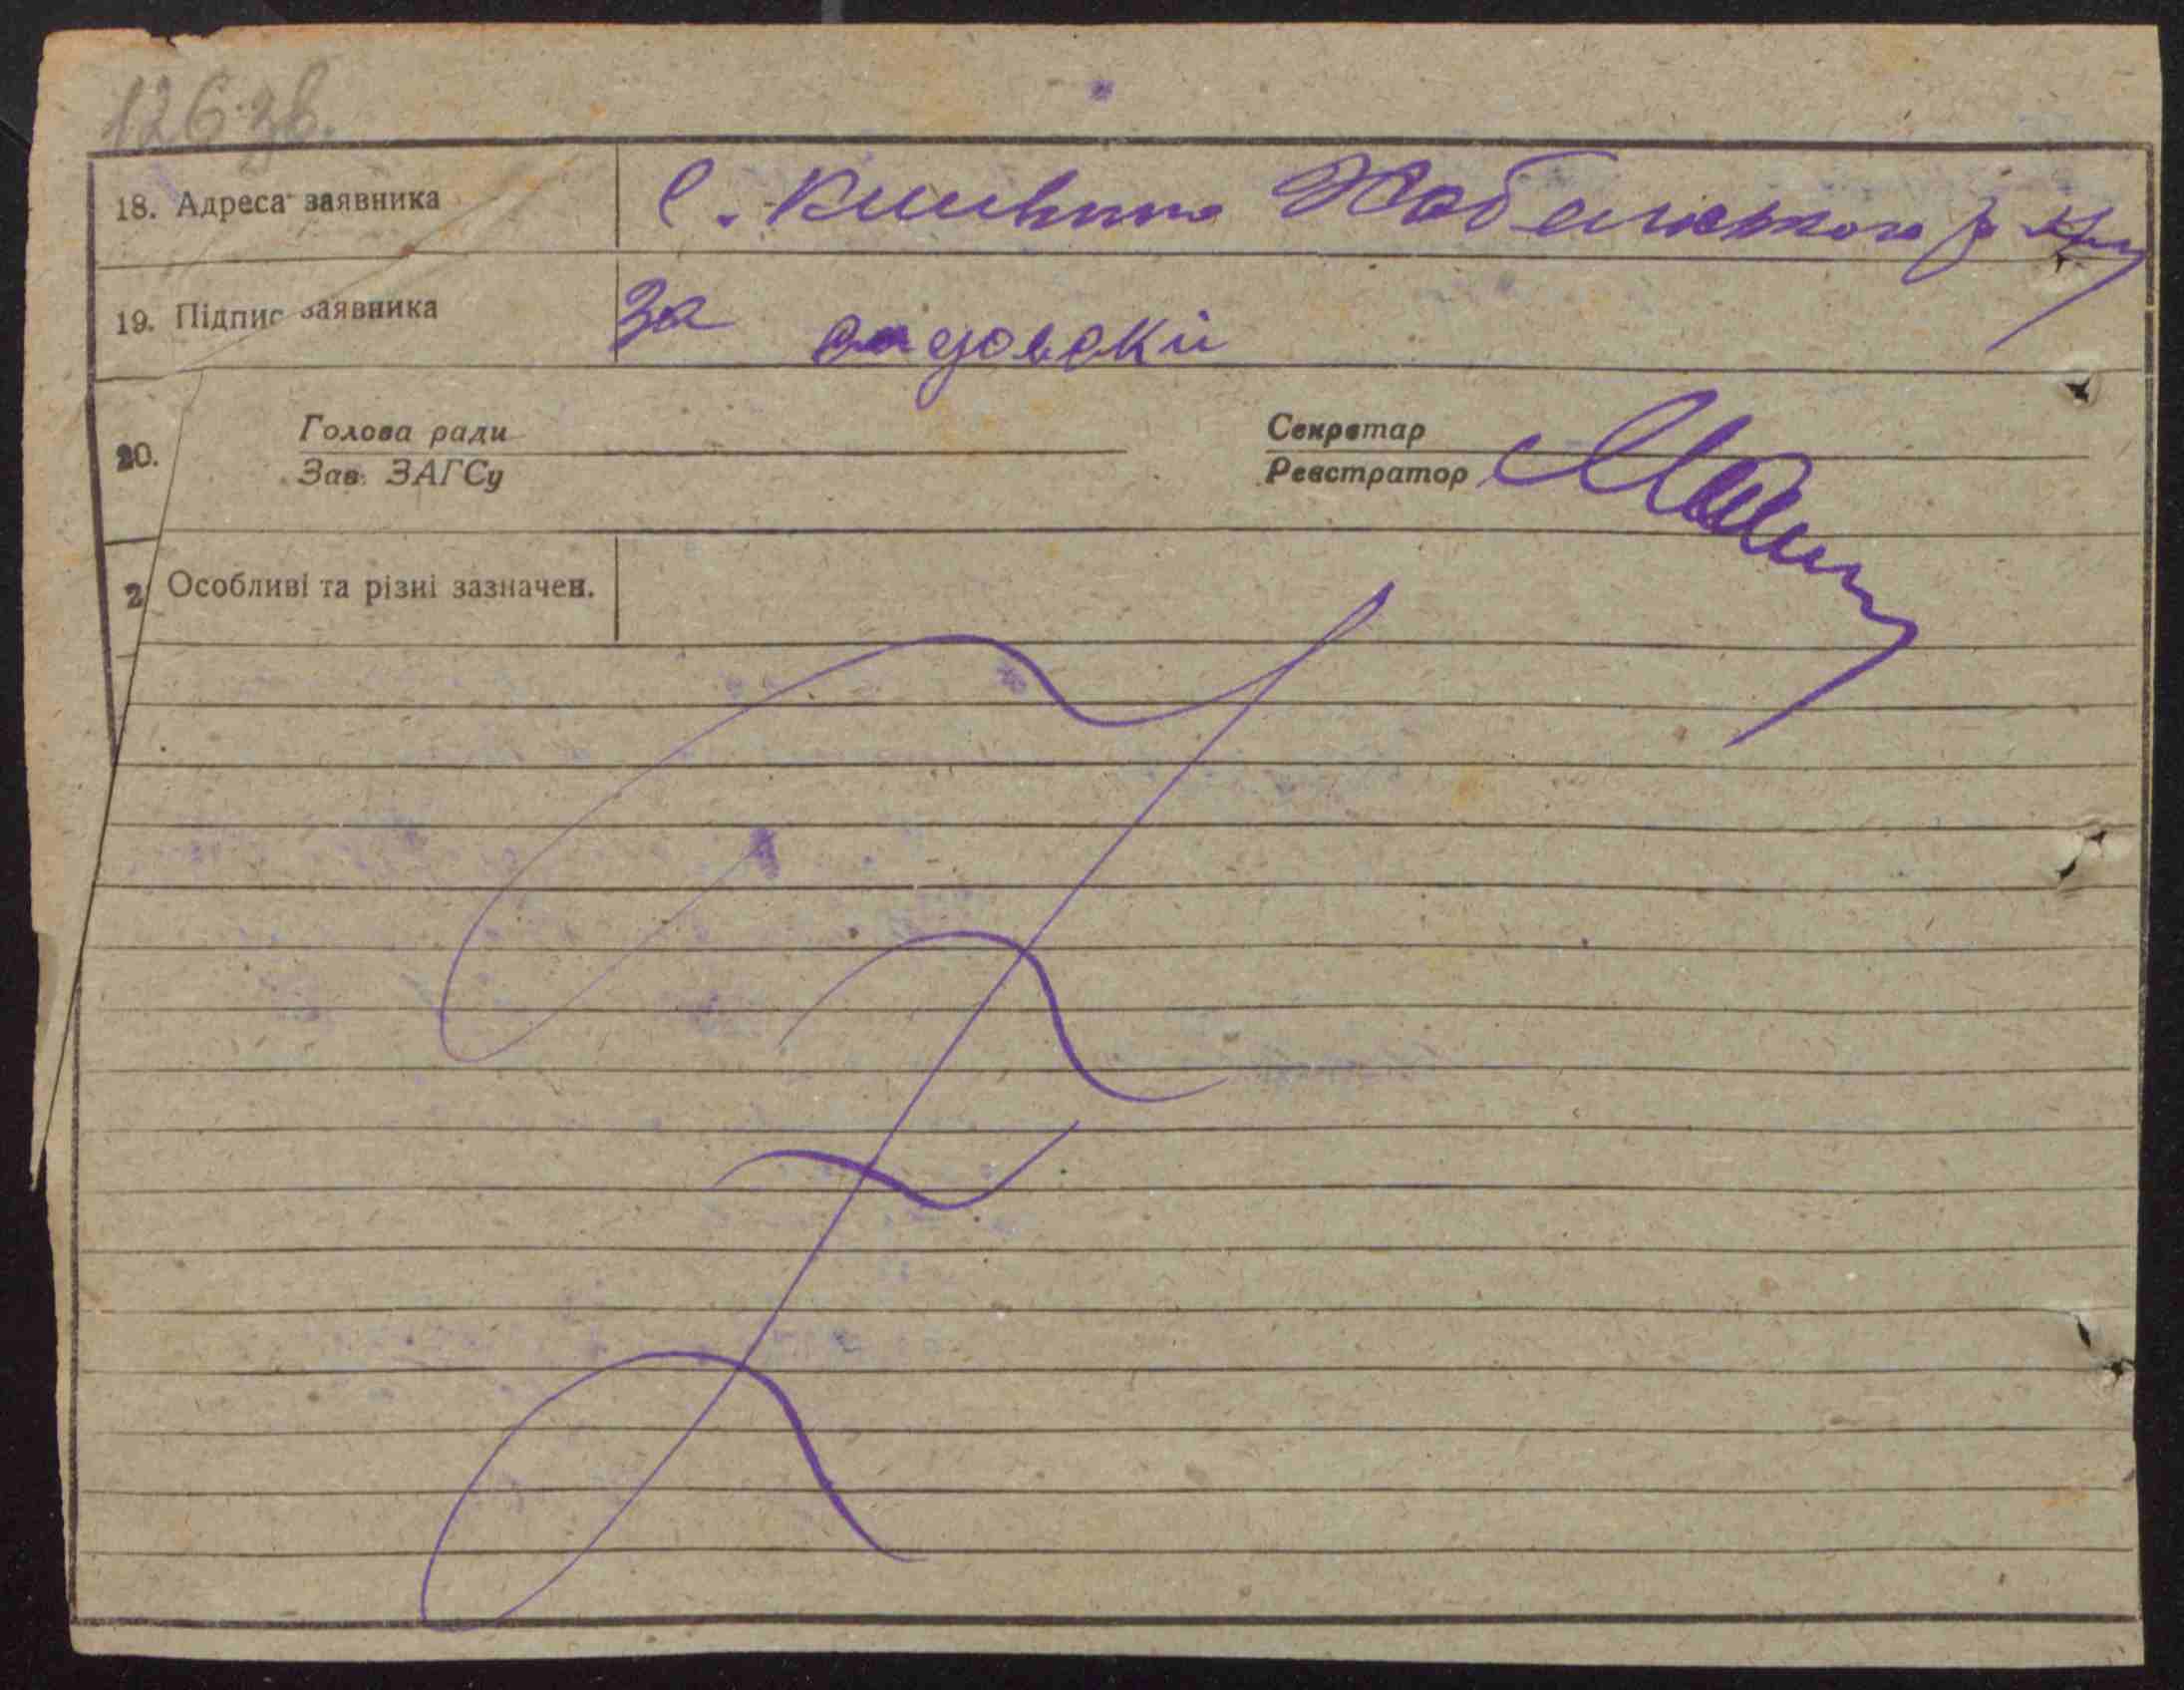 126 зв.
18. Адреса заявника с.
19. Підпис заявника За садовский
20. Голова ради Секретар
Зав. ЗАГСу Реєстратор
2 Особливі та різні зазначен.